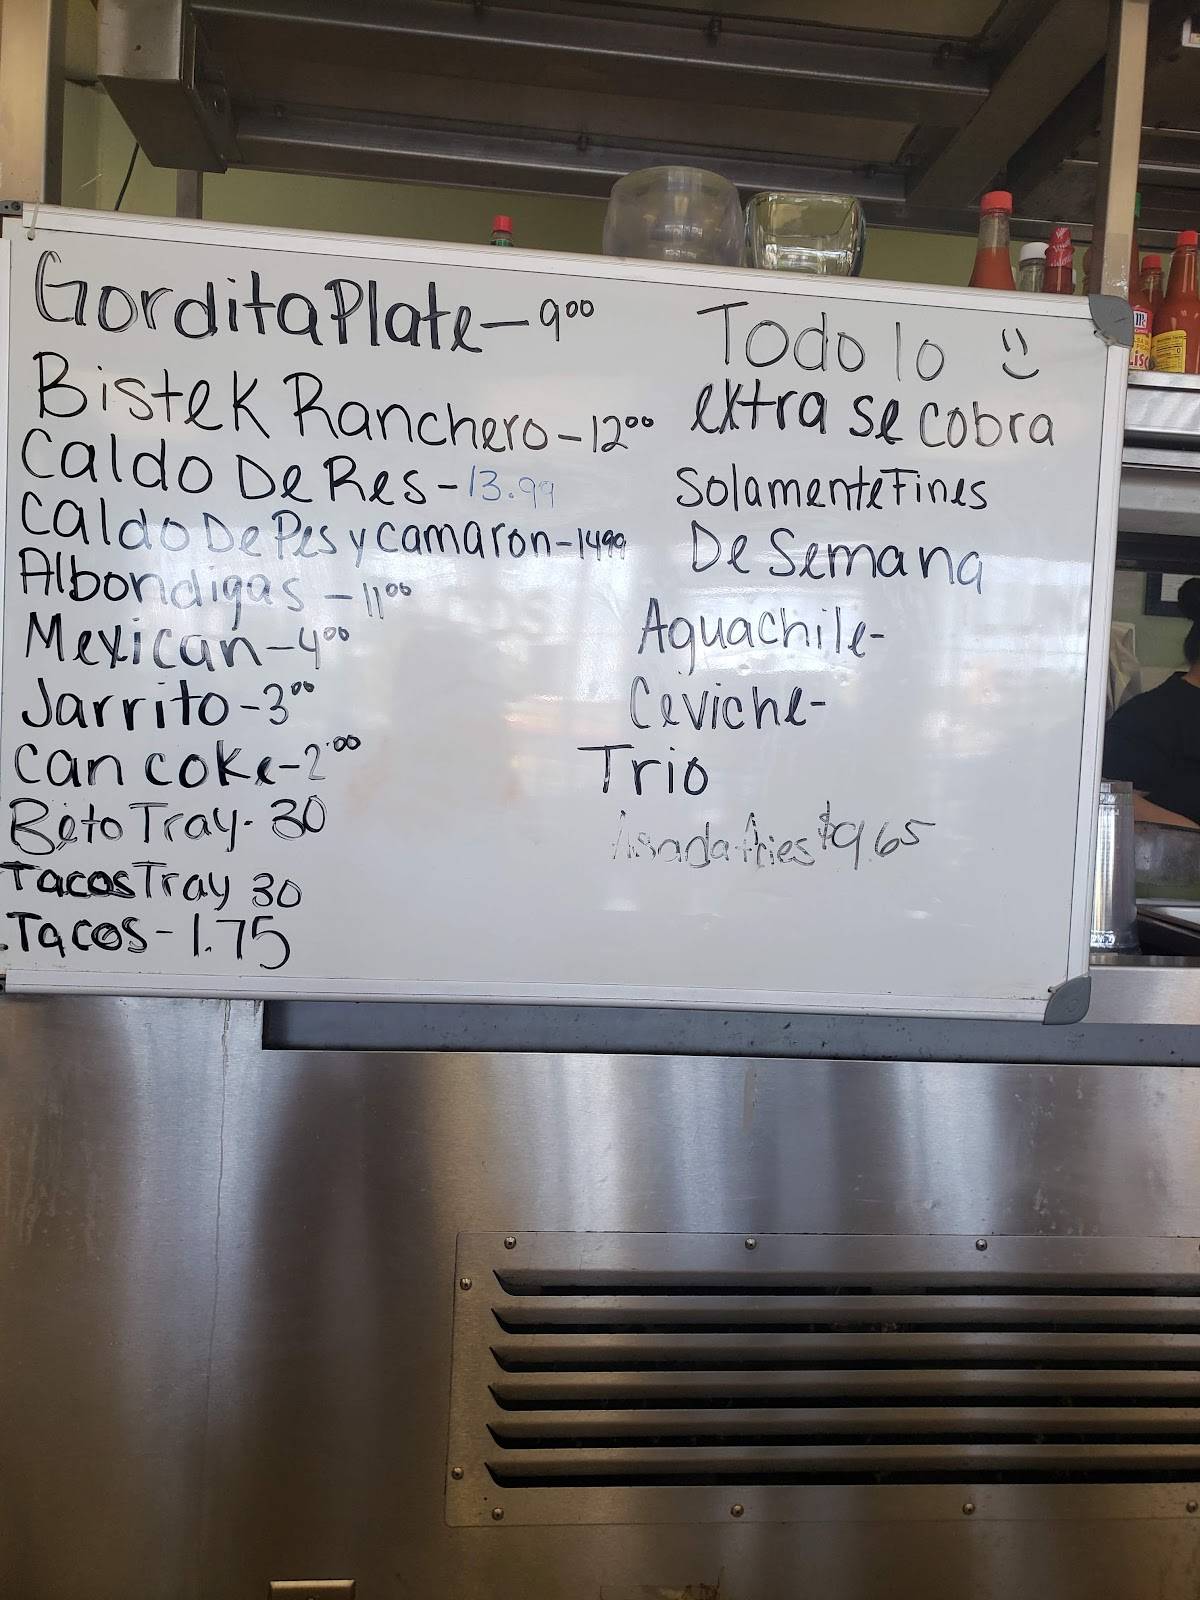 Gordita Plate - 9⁰⁰
Bistek Ranchero - 12⁰⁰
Caldo De Res - 13.99
Caldo De Pes y Camaron - 1499
Albondigas - 11⁰⁰
Mexican - 4⁰⁰
Jarrito - 3⁰⁰
Can coke - 2.⁰⁰
Beto Tray - 30
Tacos Tray 30
Tacos - 1.75
Todo lo
extra se cobra
Solamente Fines
De Semana
Aguachile -
Ceviche -
Trio
Asada fries $9.65